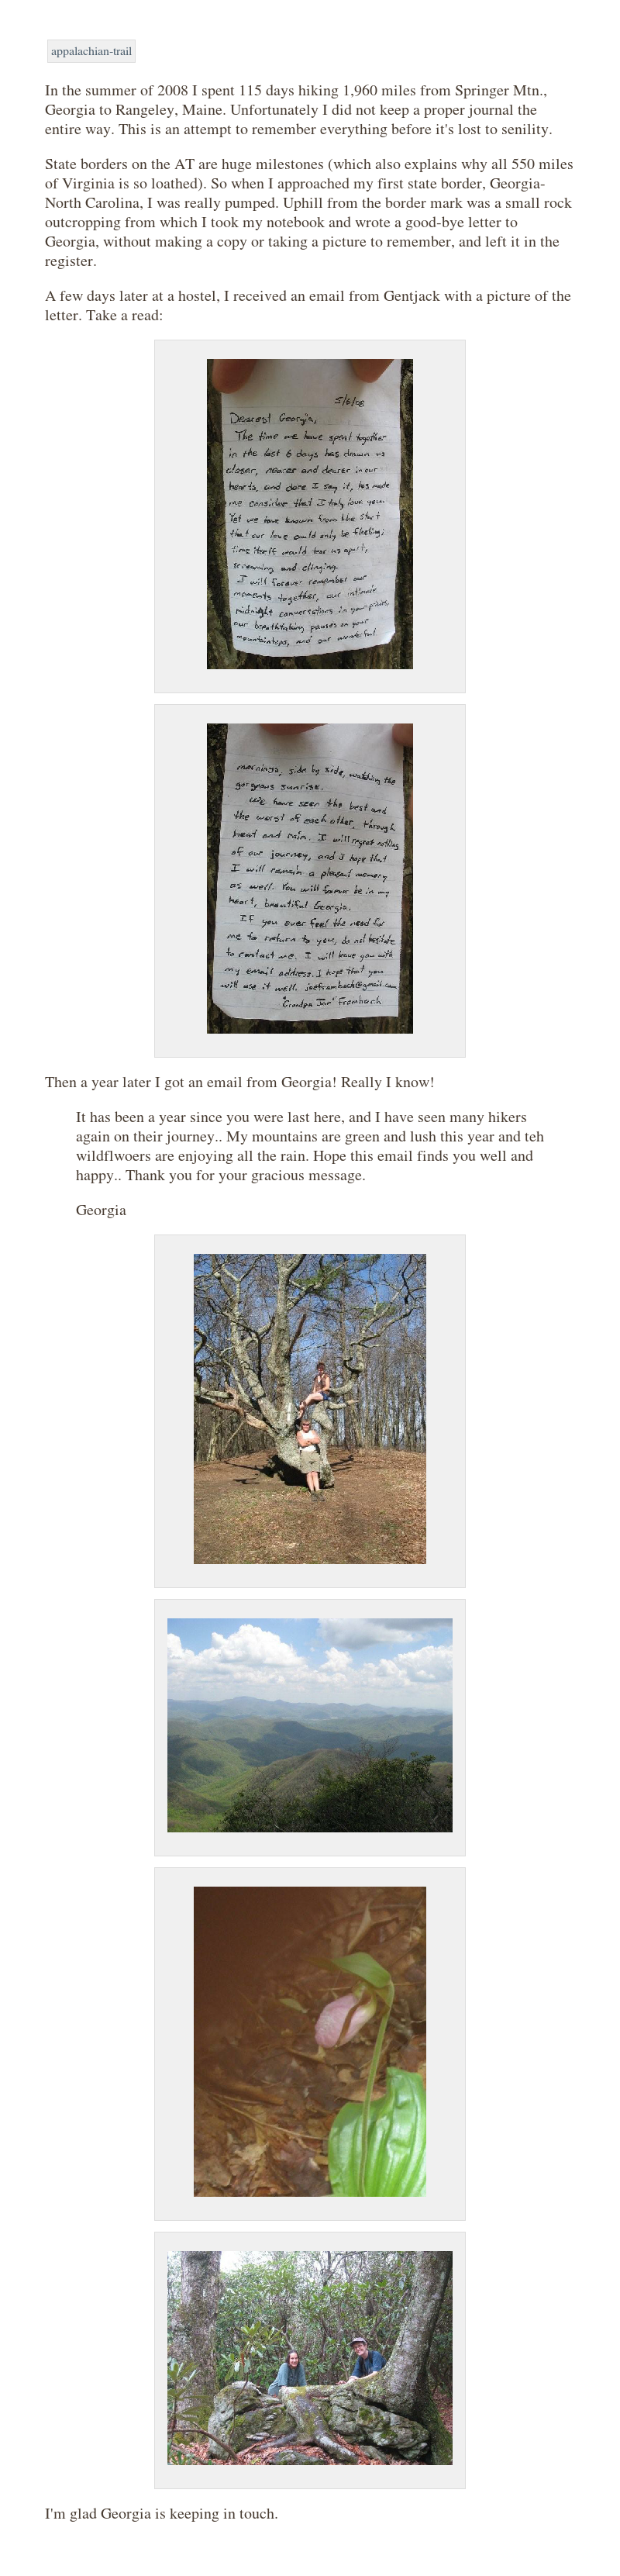 appalachian-trail
In the summer of 2008 I spent 115 days hiking 1,960 miles from Springer Mtn.,
Georgia to Rangeley, Maine. Unfortunately I did not keep a proper journal the
entire way. This is an attempt to remember everything before it's lost to senility.
State borders on the AT are huge milestones (which also explains why all 550 miles
of Virginia is so loathed). So when I approached my first state border, Georgia-
North Carolina, I was really pumped. Uphill from the border mark was a small rock
outcropping from which I took my notebook and wrote a good-bye letter to
Georgia, without making a copy or taking a picture to remember, and left it in the
register.
A few days later at a hostel, I received an email from Gentjack with a picture of the
letter. Take a read:
Dearest Georgia,
The time we have spent together
in the last 6 days has drawn us
closer, nearer and dearer in our
hearts, and dare I say it, has made
me consider that I truly love you.
Yet we have known from the start
that our love could only be fleeting;
time itself would tear us apart,
screaming and clinging.
I will forever remember our
moments together, our intimate
midnight conversations in your
our breathtaking pauses on your
mountaintops, and our wonderful
mornings, side by side, watching the
gorgeous sunrise.
We have seen the best and
the worst of each other, through
heat and rain. I will regret nothing
of our journey, and I hope that
I will remain a pleasant memory
as well. You will forever be in my
heart, beautiful Georgia.
If you ever feel the need for
me to return to you, do not hesitate
to contact me. I will leave you with
my email address. I hope that you
will use it well. joeframbach@gmail.com
"Grandpa Joe" Frambach
Then a year later I got an email from Georgia! Really I know!
It has been a year since you were last here, and I have seen many hikers
again on their journey.. My mountains are green and lush this year and teh
wildflwoers are enjoying all the rain. Hope this email finds you well and
happy.. Thank you for your gracious message.
Georgia
I'm glad Georgia is keeping in touch.